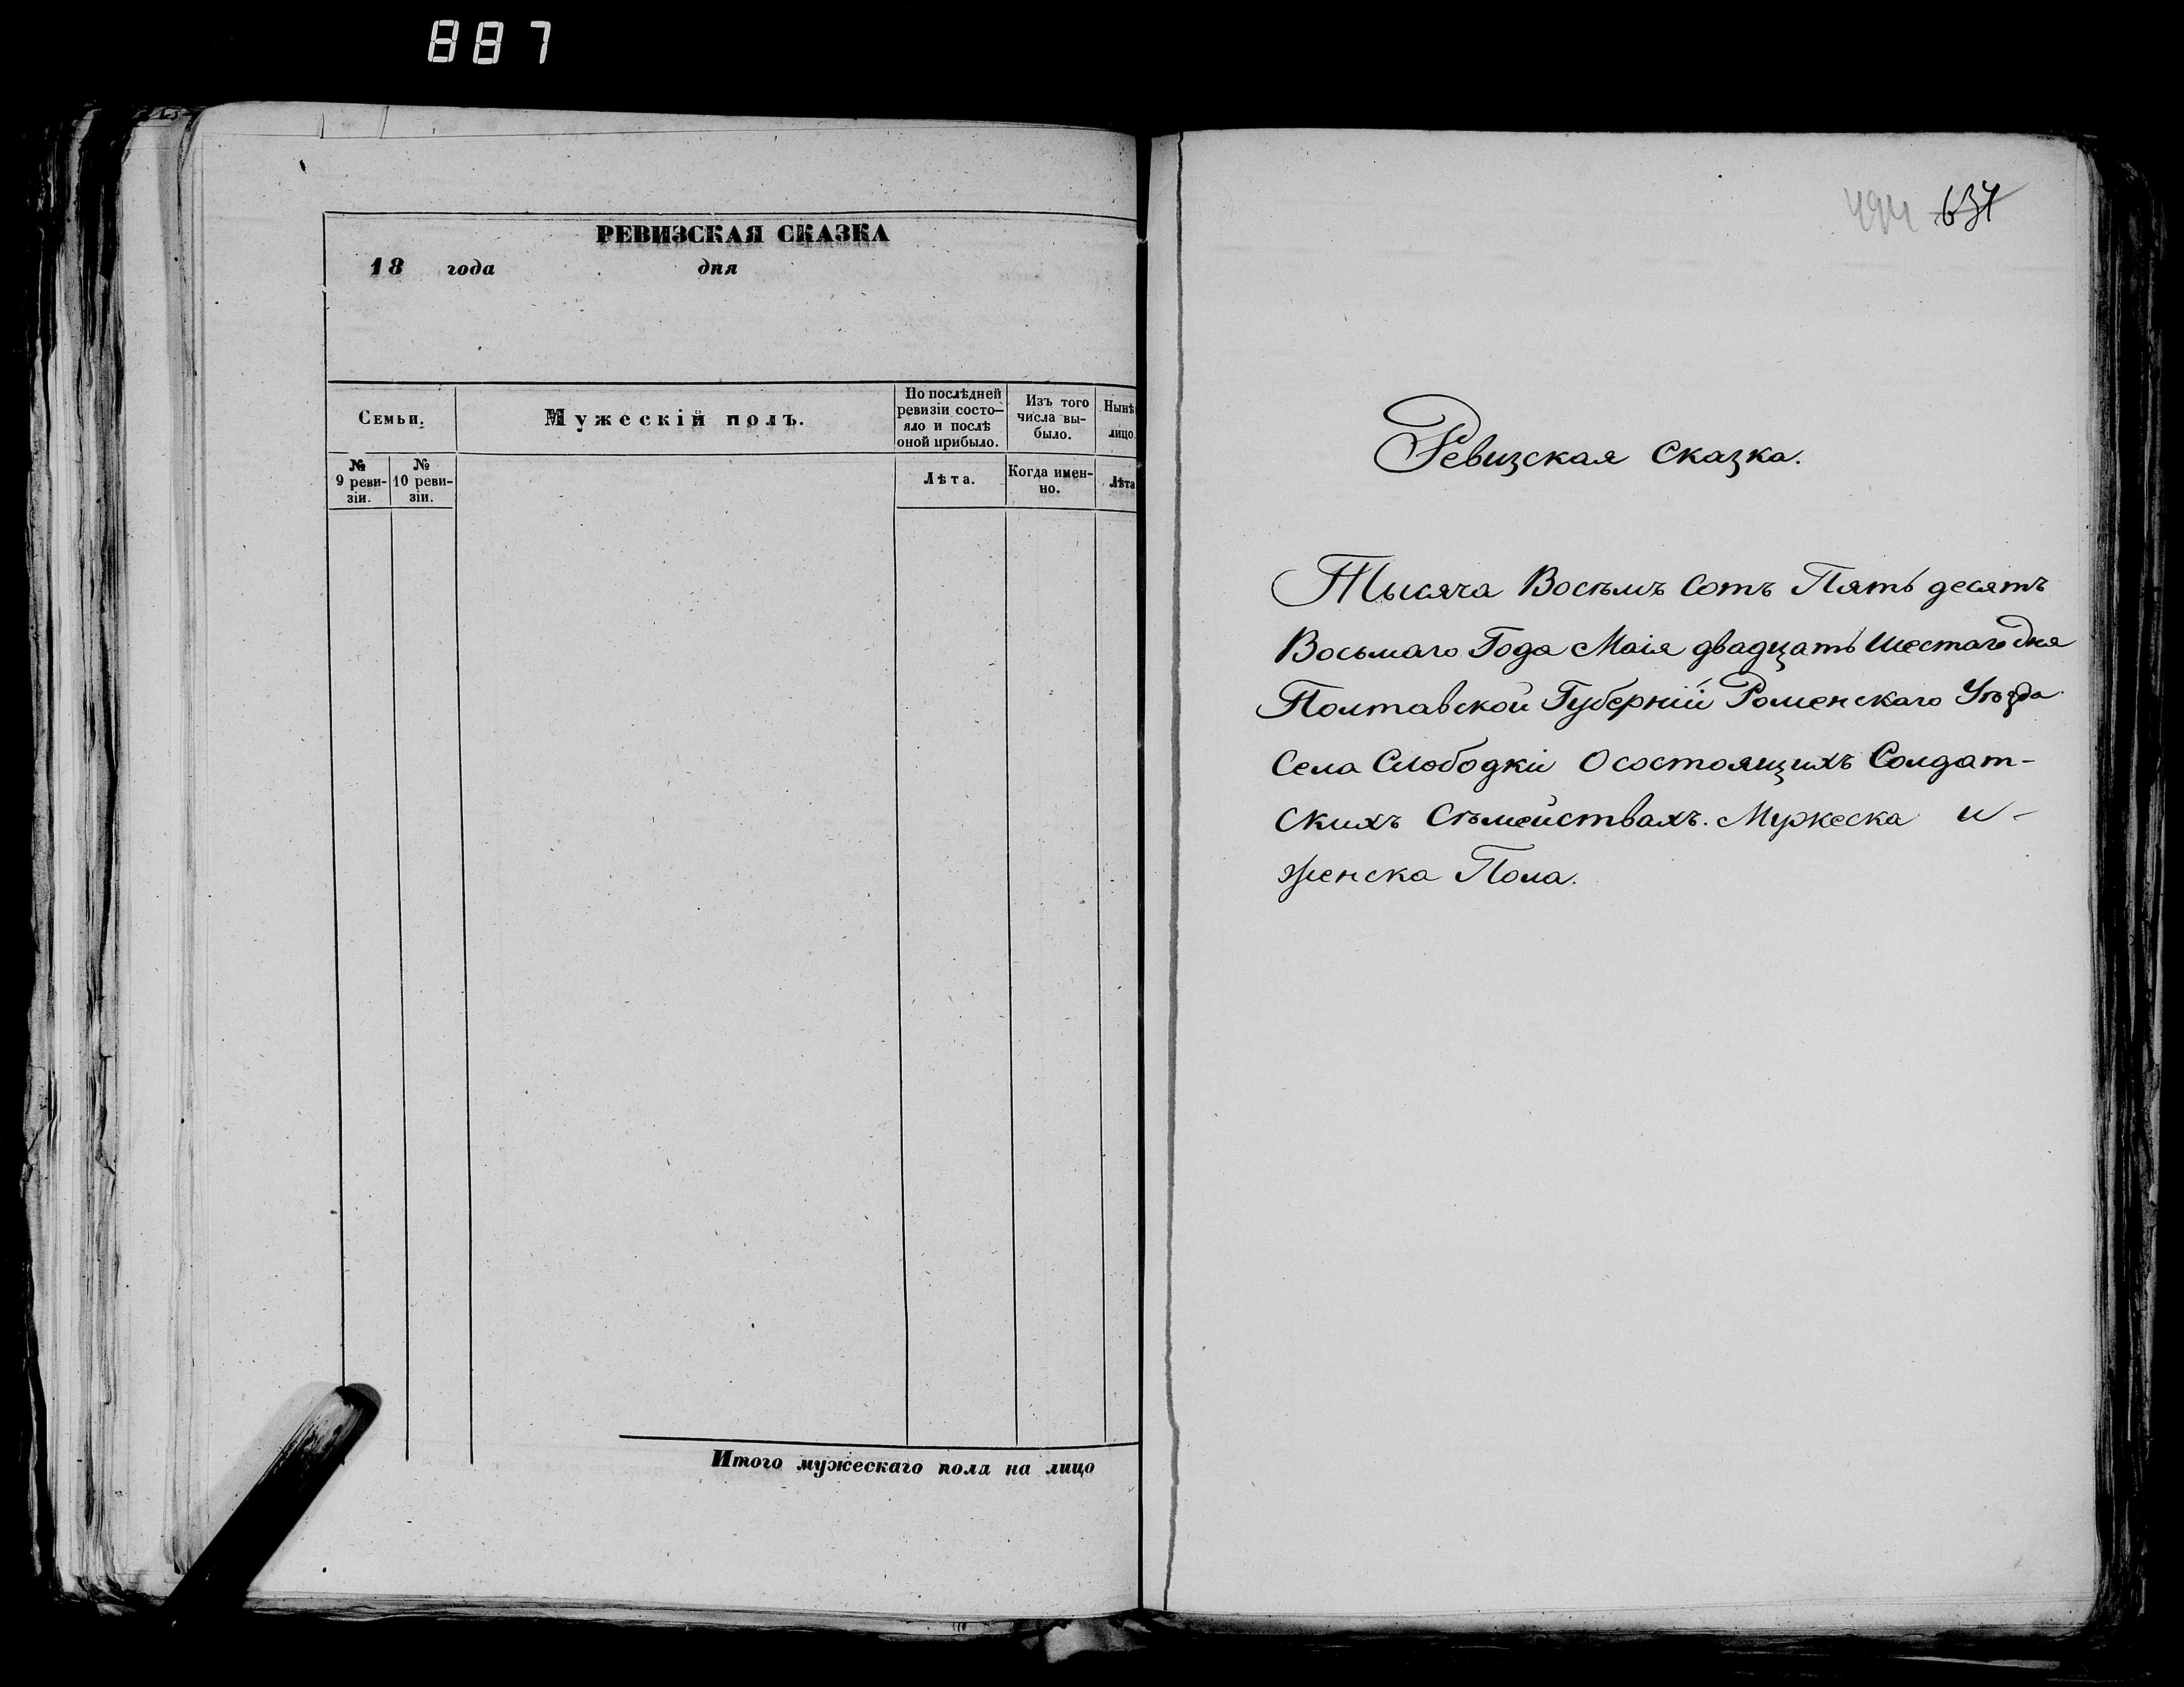 887
РЕВИЗСКАЯ СКАЗКА
18 года дня
Семьи.
Мужескій полъ.
По послѣдней
ревизіи состо-
яло и послѣ
оной прибыло.
Изъ того
числа вы-
было.
Нынѣ
лицо.
№
9 реви-
зіи.
№
10 реви-
зіи.
Лѣта.
Когда имен-
но.
Лѣта
Итого мужескаго пола на лицо
494
Ревизская Сказка.
Тысяча Восѣмъ Сотъ Пять десятъ
Восьмаго Года Маія двадцать Шестаго дня
Полтавской Губерніи Роменскаго Уѣзда
Села Слободки О состоящихъ Солдат-
скихъ Сѣмействахъ. Мужеска и-
женска Пола.